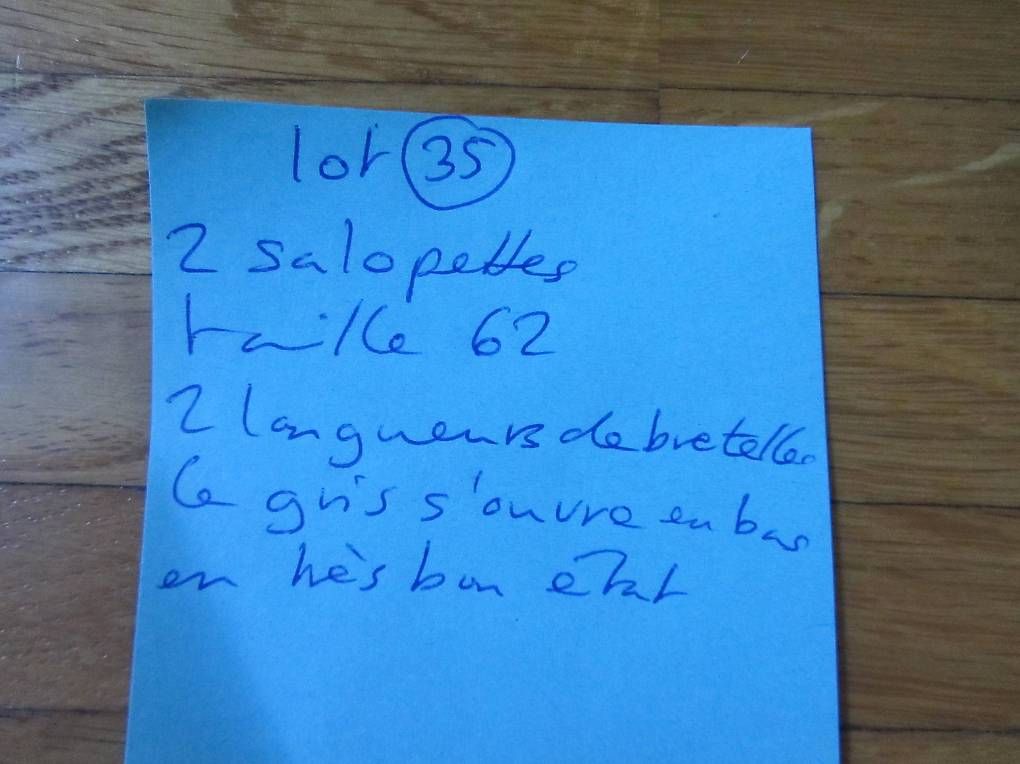 lot 35
2 salopettes
taille 62
2 longueurs de bretelles
le gris s'ouvre en bas
en très bon état